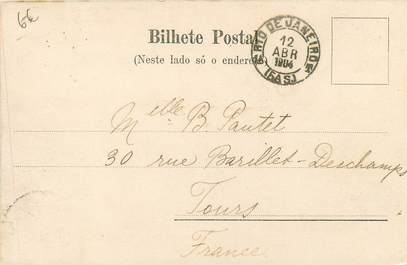 6€
Bilhete Postal
(Neste lado só o endereço)
RIO DE JANEIRO
12
ABR
1904
(5A S.)
Mlle B. Pautet
30 rue Barillet-Deschamps
Tours
France